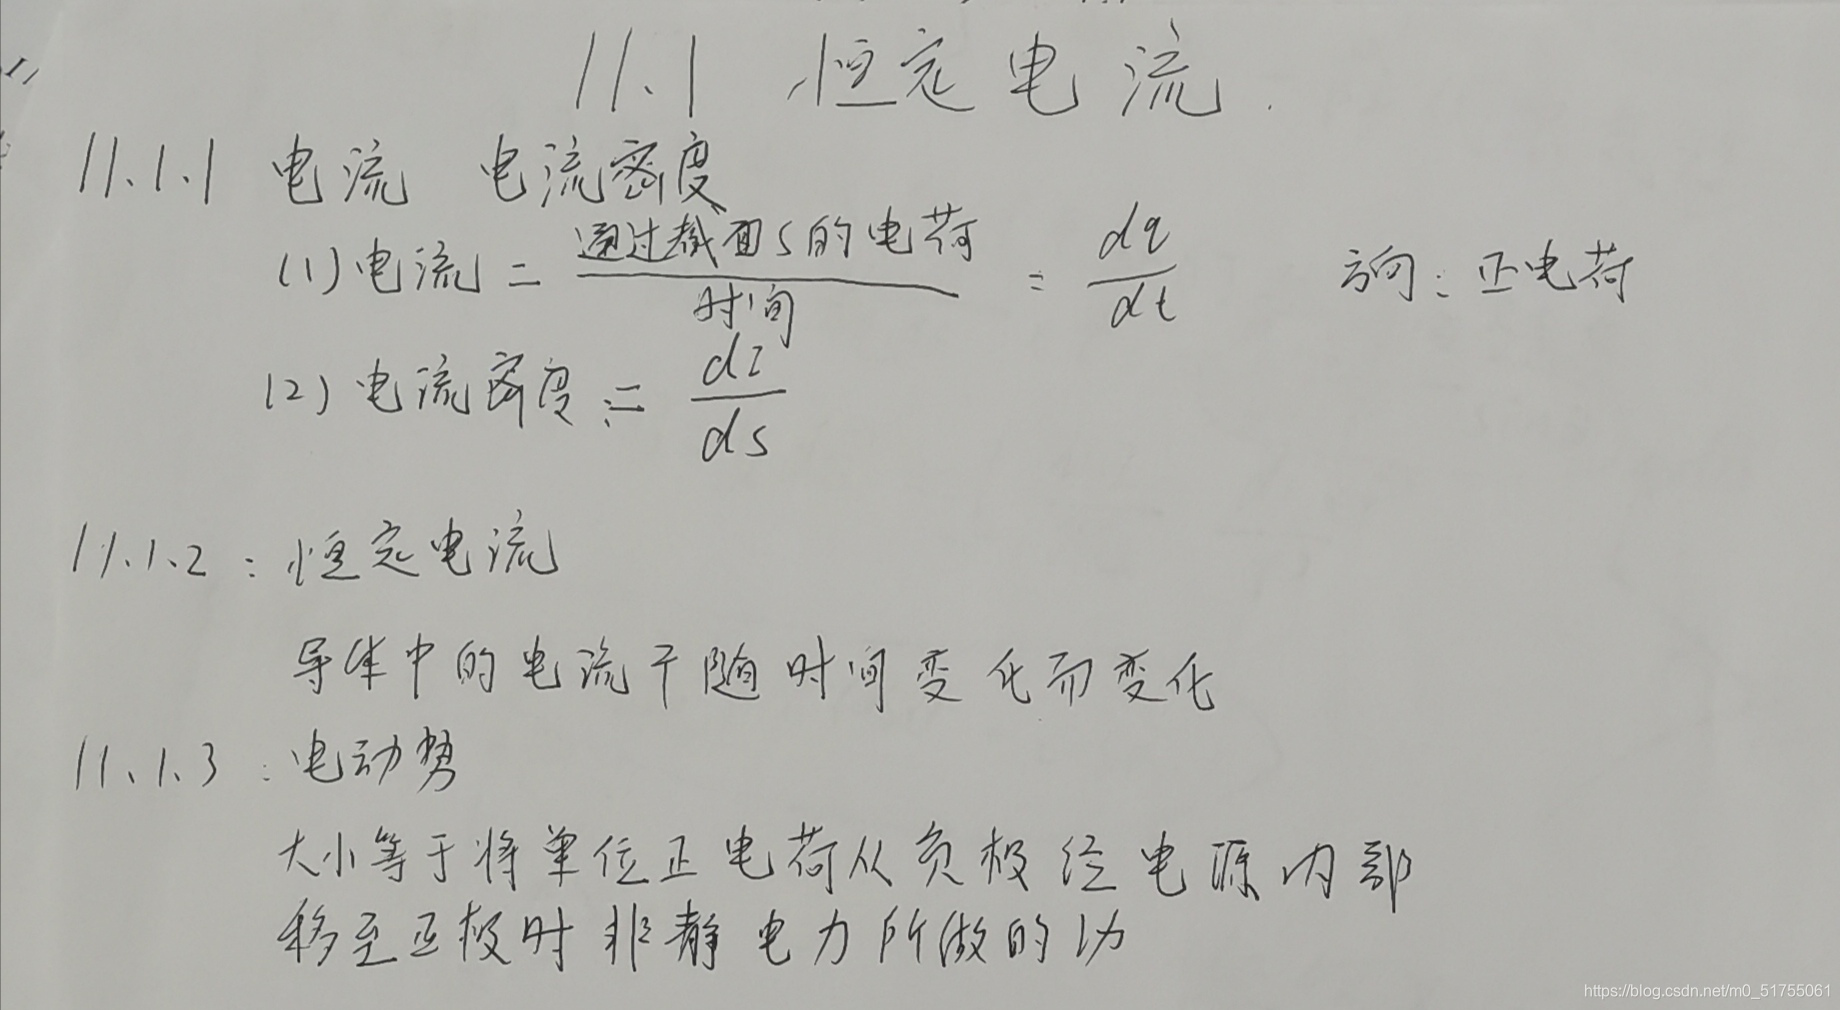 11.1 恒定电流
11.1.1 电流 电流密度
(1) 电流 = 通过截面S的电荷 / 时间 = dq/dt 方向：正电荷
(2) 电流密度 = dI/ds
11.1.2：恒定电流
导体中的电流不随时间变化而变化
11.1.3：电动势
大小等于将单位正电荷从负极经电源内部
移至正极时非静电力所做的功
https://blog.csdn.net/m0_51755061